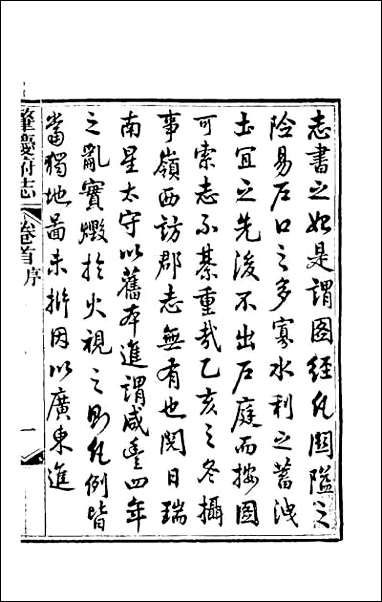 志書之始是謂圖經凡關隘之
險易戶口之多寡水利之蓄洩
土宜之先後不出戶庭而按圖
可索志不綦重哉乙亥之冬攝
事嶺西訪郡志無有也閱日瑞
南星太守以舊本進謂咸豐四年
之亂實燬於火視之則凡例皆
當獨地圖未捬因以廣東進
肇慶府志
卷首序
一